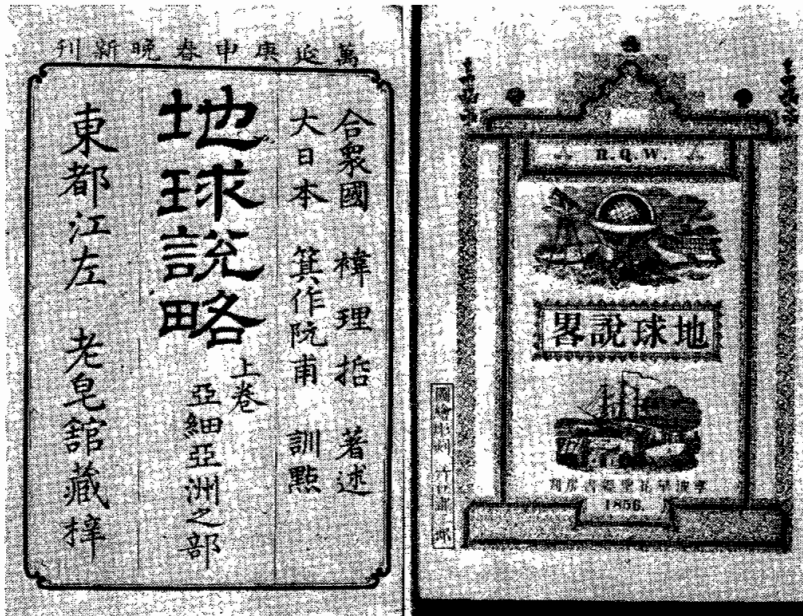 R.Q.W.
地球說畧
寧波華花聖經書房刊
1856.
圖繪彫刻
萬延庚申春晩新刊
合衆國 褘理哲 著述
大日本 箕作阮甫 訓點
地球說略 上卷
亞細亞洲之部
東都江左 老皂舘藏梓